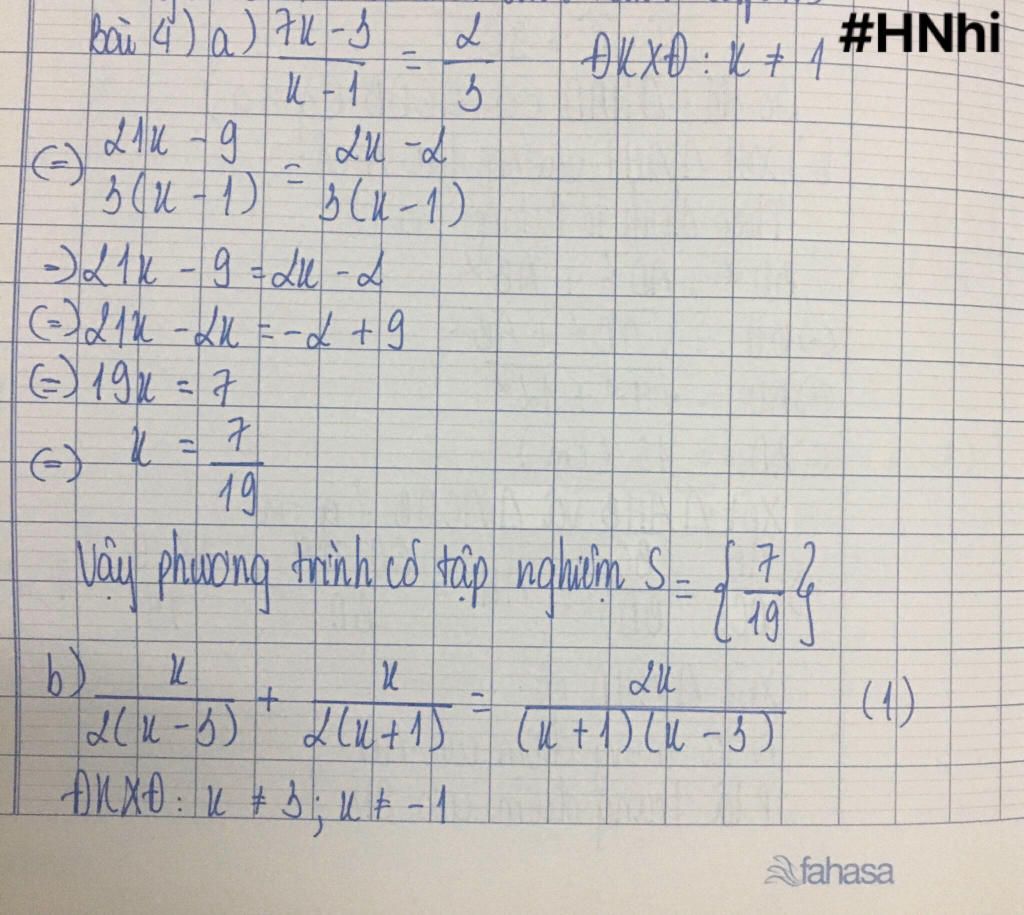 #HNhi
Bài 4) a) \frac{7x-3}{x-1} = \frac{2}{3} ĐKXĐ: x ≠ 1
(=) \frac{21x-9}{3(x-1)} = \frac{2x-2}{3(x-1)}
=) 21x - 9 = 2x - 2
(=) 21x - 2x = -2 + 9
(=) 19x = 7
(=) x = \frac{7}{19}
Vậy phương trình có tập nghiệm S = {\frac{7}{19}}
b) \frac{x}{2(x-3)} + \frac{x}{2(x+1)} = \frac{2x}{(x+1)(x-3)} (1)
ĐKXĐ: x ≠ 3; x ≠ -1
fahasa